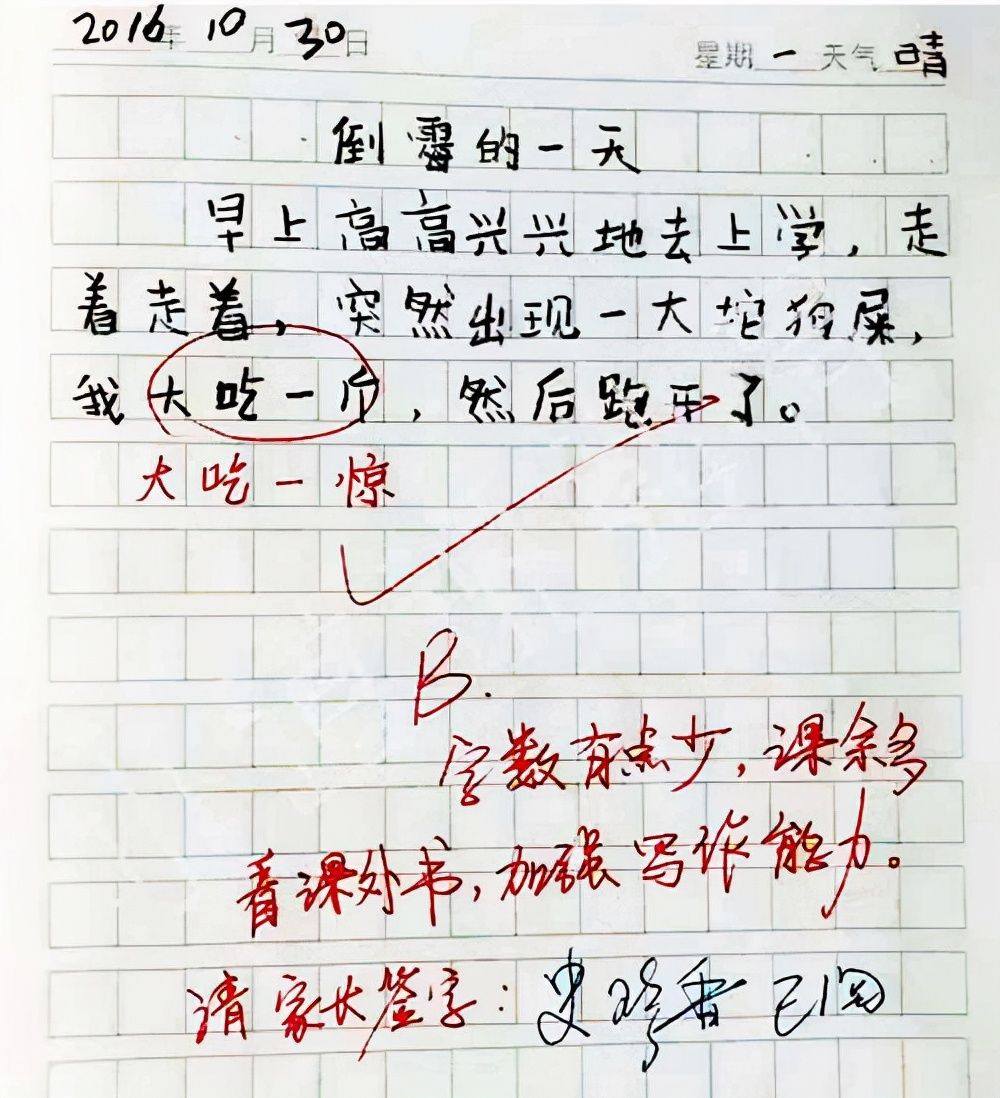 2016年 10月 30日 星期 一 天气 晴
倒霉的一天
早上高高兴兴地去上学,走
着走着,突然出现一大坨狗屎,
我大吃一斤,然后跑开了。
大吃一惊
B.
字数有点少,课余多
看课外书,加强写作能力。
请家长签字: 史珍香 已阅